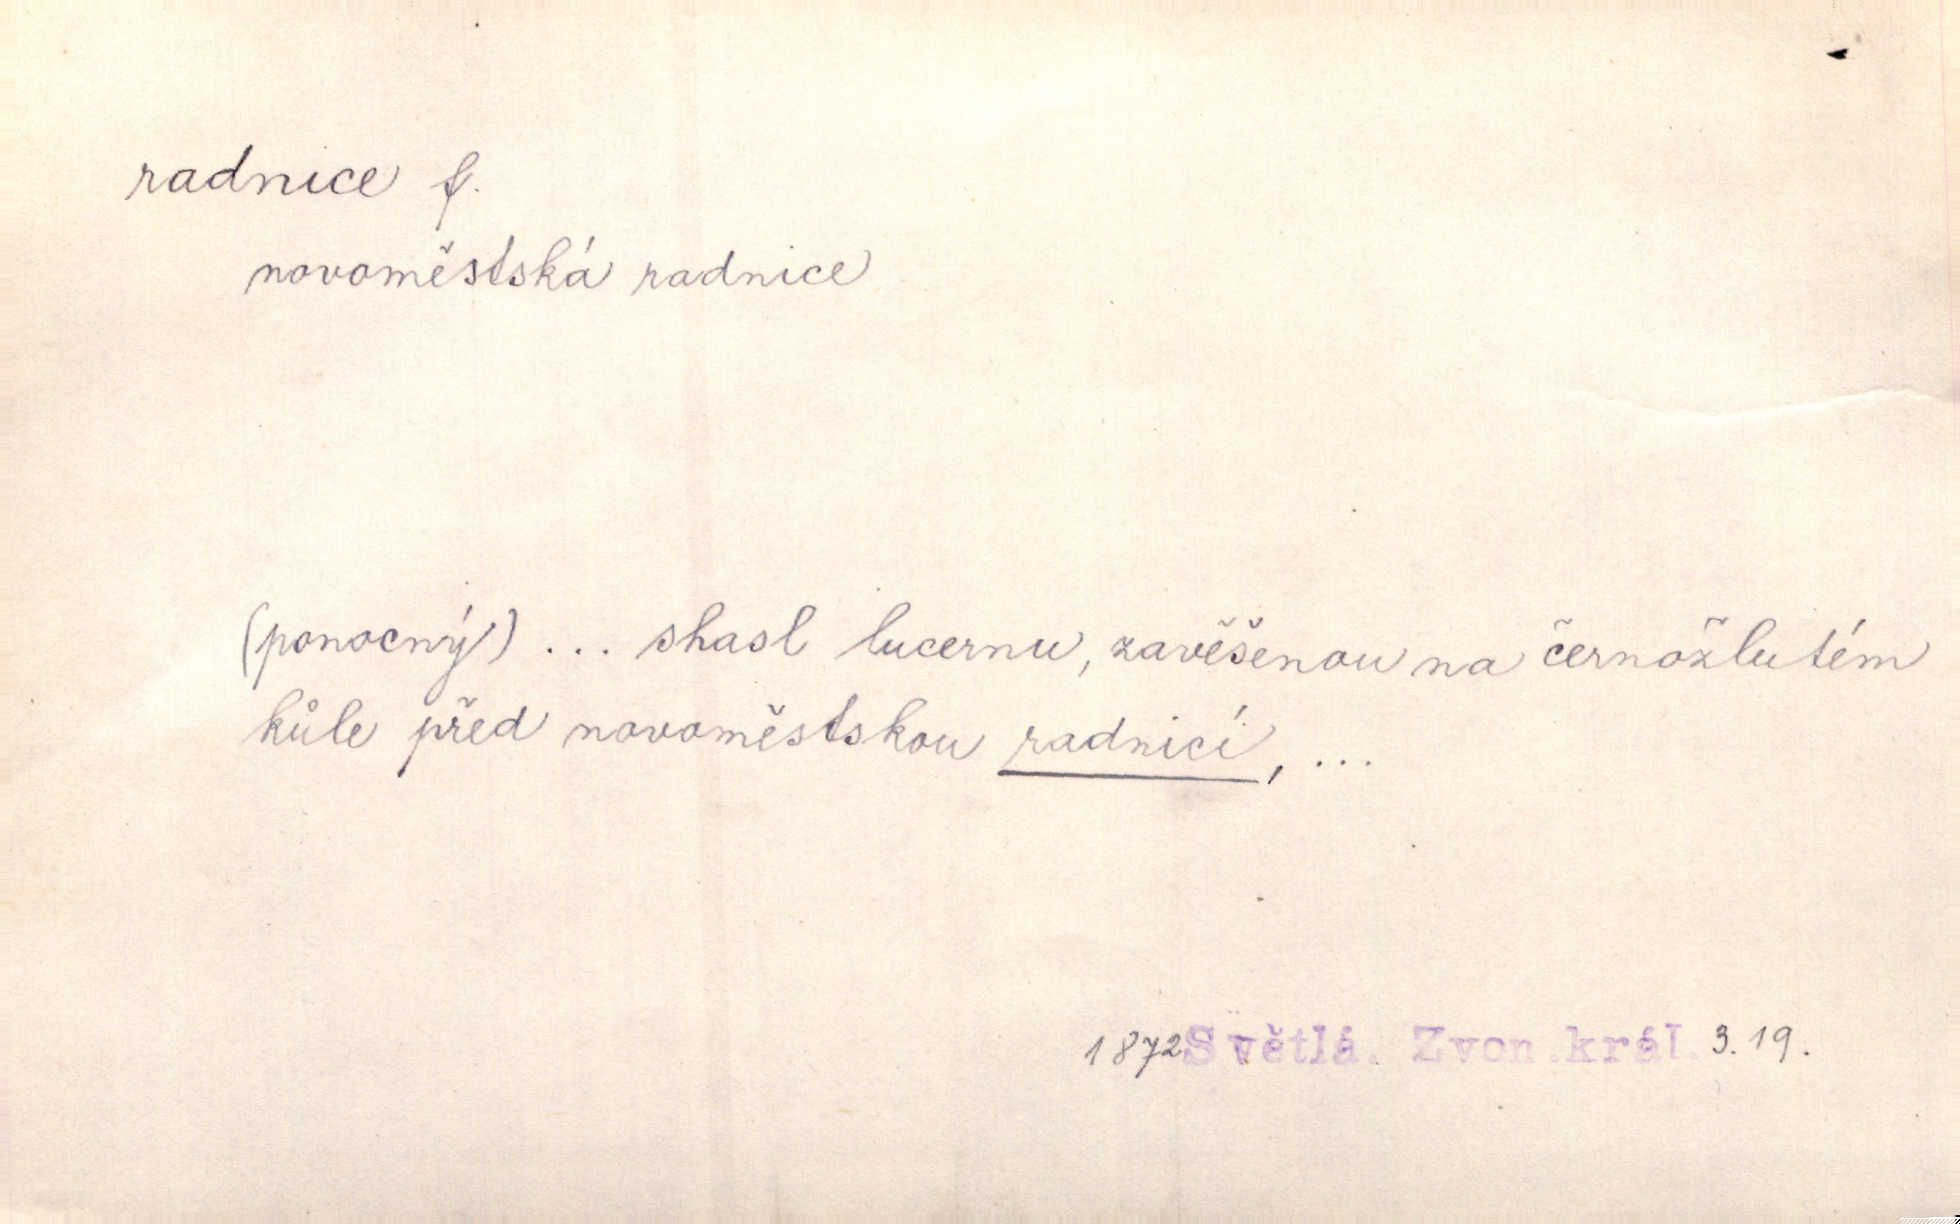 radnice f.
novoměstská radnice
(ponocný) ... shasl lucernu, zavěšenou na černožlutém
kůle před novoměstskou radnicí, ...
1872 Světlá. Zvon.král. 3. 19.